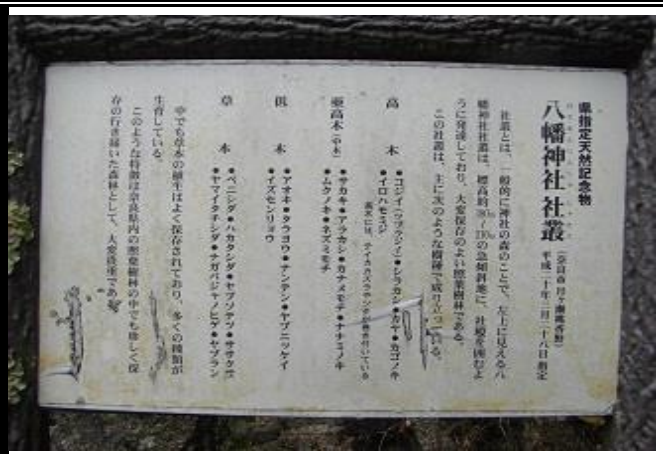 県指定天然記念物
八幡神社社叢
平成二十年三月二十八日指定
社叢とは、一般的に神社の森のことで、左上に見える八
幡神社社叢は、標高約 の急傾斜地に、社殿を囲むよ
うに発達しており、大変保存のよい照葉樹林である。
この社叢は、主に次のような樹種で成り立っている。
高木
●コジイ(ツブラジイ)●シラカシ●カヤ●カゴノキ
●イロハモミジ
高木には、テイカカズラ が巻き付いている
亜高木(中木)
●サカキ●アラカシ●カナメモチ●ナナミノキ
●ムクノキ●ネズミモチ
低木
●アオキ●タラヨウ●ナンテン●ヤブニッケイ
●イズセンリョウ
草本
●ベニシダ●ハカタシダ●ヤブソテツ●ササクサ
●ヤマイタチシダ●ナガバジャノヒゲ●ヤブラン
中でも草本の植生はよく保存されており、多くの種類が
生育している。
このような特徴は奈良県内の照葉樹林の中でも珍しく保
存の行き届いた森林として、大変貴重である。